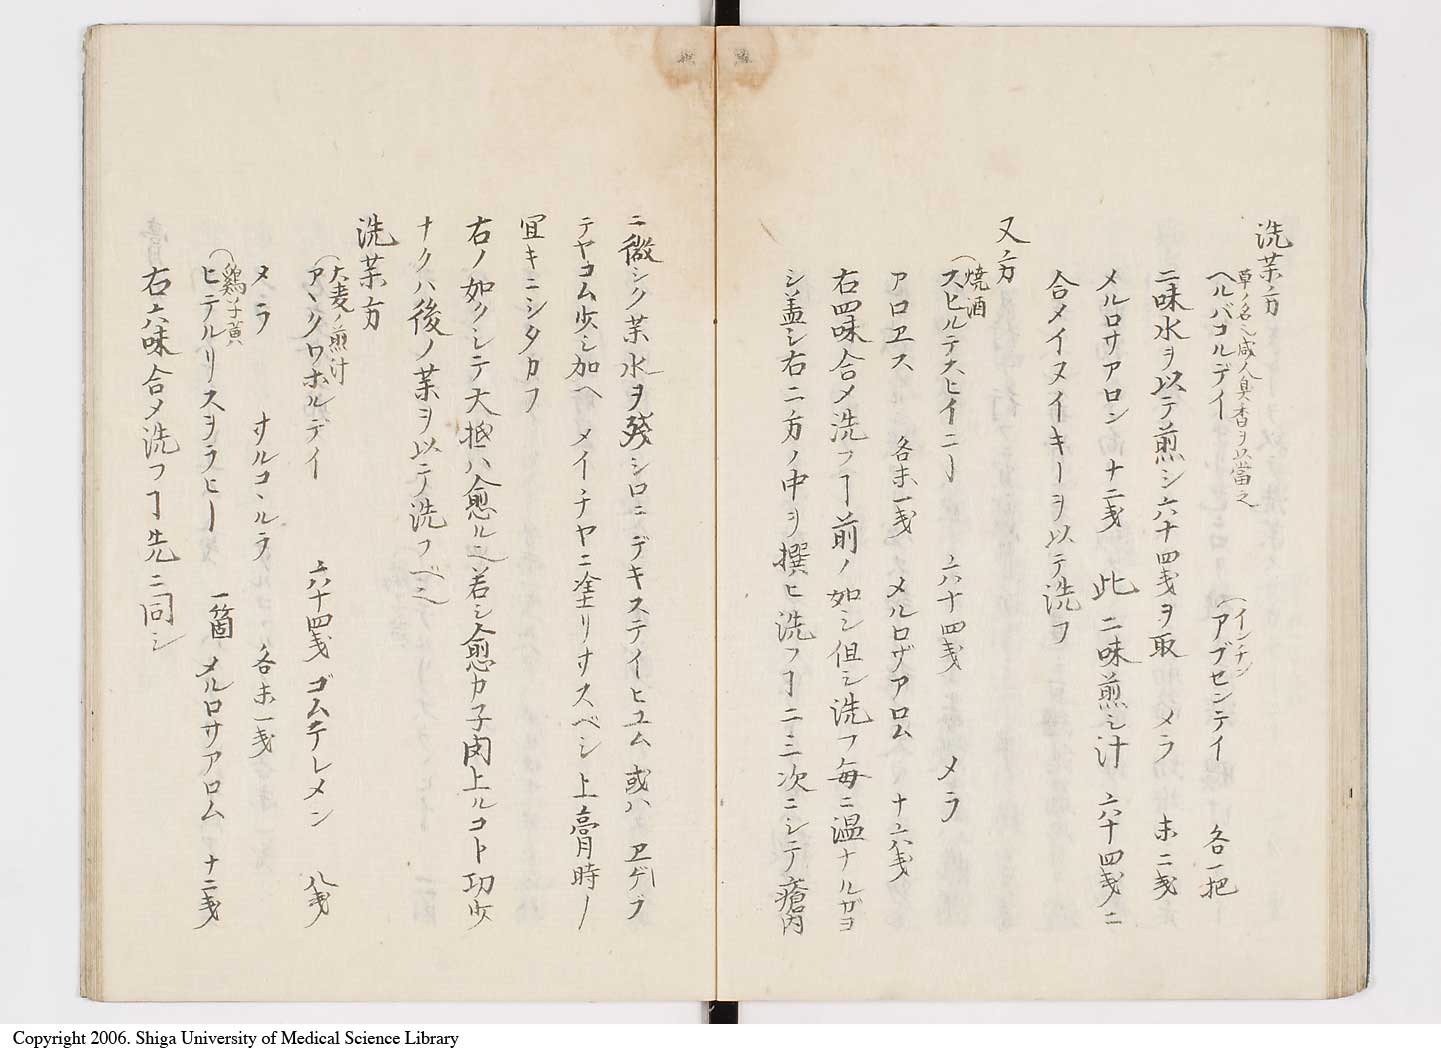 洗薬方
草ノ名也咸人莫香ヲ以當之
ヘルバコルデイ (インチン アブセンテイ 各一把
二味水ヲ以テ煎シ六十四戔ヲ取 メラ 末二戔
メルロサアロン 十二戔 此二味煎シ汁六十四戔ニ
合メイヌイキーヲ以テ洗フ
又方
(焼酒
スヒルテスヒイニー 六十四戔 メラ
アロヱス 各末一戔 メルロザアロム 十六戔
右四味合メ洗フヿ前ノ如シ但シ洗フ毎ニ温ナルガヨ
シ盖シ右二方ノ中ヲ撰ヒ洗フヿ二三次ニシテ瘡内
ニ微シク薬水ヲ残シロニデキステイヒユム或ハヱゲフ
テヤコム少シ加ヘ メイチヤニ塗リサスベシ上膏時ノ
宜キニシタカフ
右ノ如クシテ大抵ハ愈ル也若シ愈カ子肉上ルコト功少
ナクハ後ノ薬ヲ以テ洗フベシ
洗薬方
(大麦ノ煎汁
アヽクワホルデイ 六十四戔 ゴムテレメン 八戔
メラ サルコヽルラ 各末一戔
(鶏子黄
ヒテルリスヲラヒー 一箇 メルロサアロム 十二戔
右六味合メ洗フヿ先ニ同シ
Copyright 2006. Shiga University of Medical Science Library